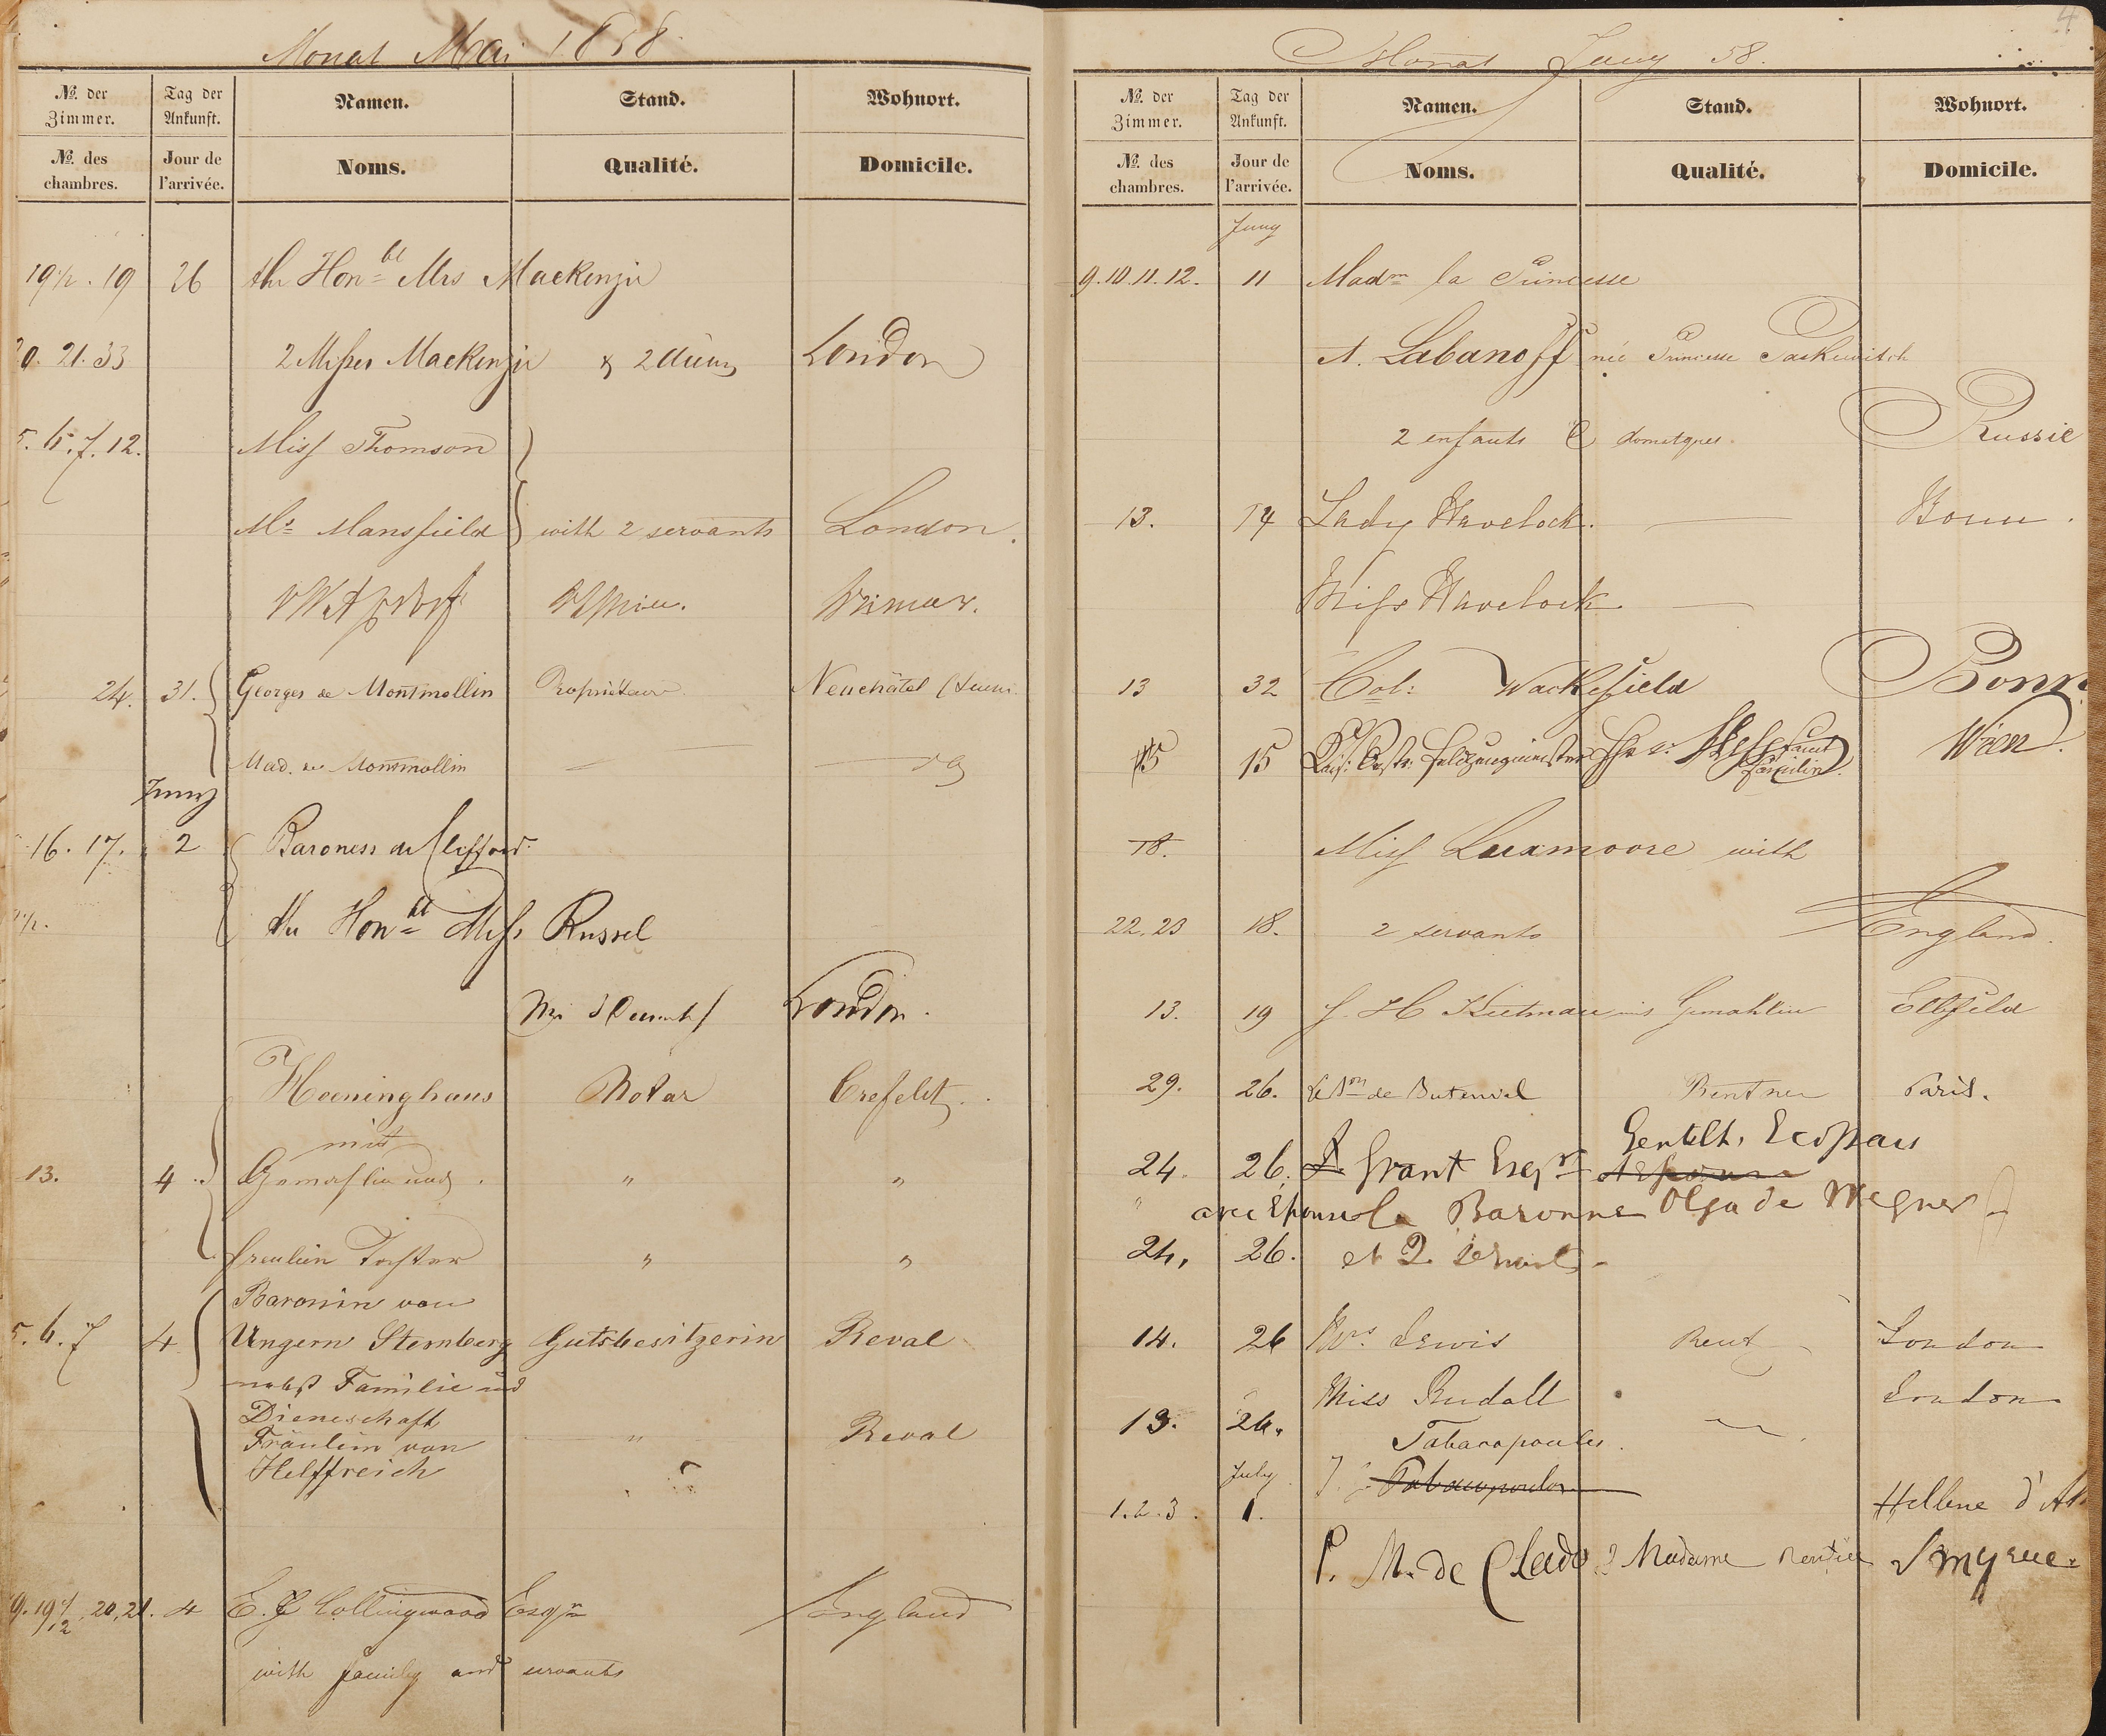 Monat Mai 1858
№. der Zimmer. Tag der Ankunft. Namen. Stand. Wohnort.
№. des chambres. Jour de l'arrivée. Noms. Qualité. Domicile.
19 1/2 . 19 26 the Honble Mrs Mackenzie
20. 21. 33 2 Misses Mackenzie & 2 London
5. 6. 7. 12. Miss Thomson
Ms Mansfield with 2 servants London.
24. 31. Georges de Montmollin Propriétaire Neuchâtel
Mad. de Montmollin
Juny
16. 17. 2 Baroness de Clifford
the Honble Miss Russel
London.
Hoeninghaus Notar Crefeld
mit
13. 4 Gemahlin und " "
Fräulein Tochter " "
Baronin von
5. 6. 7 4 Ungern Sternberg Gutsbesitzerin Reval
nebst Familie und
Dienerschaft
Fräulein von " Reval
Helffreich
19 1/2. 20, 21. 4 E. J Collingwood Esqr England
with family and servants
4
Monat Juny 58.
№. der Zimmer. Tag der Ankunft. Namen. Stand. Wohnort.
№. des chambres. Jour de l'arrivée. Noms. Qualité. Domicile.
Juny
9. 10. 11. 12. 11 Madm la Princesse
A. Labanoff née Princesse Paskewitch
2 enfants & domestques. Russie
13. 14 Lady Havelock. Bonn.
Miss Havelock
13 32 Col: Wackefield Bonn
15 15 Kais: Oestr: Feldzeugmeister samt Familie. Wien.
18. Miss Luxmoore with
22. 23 18. 2 servants England.
13. 19 mit Gemahlin Elbfeld
29. 26. Le Bon de Butenval Rentner Paris.
Gentilh. Ecossais
24. 26. Grant Esqr
" avec Epouse la Baronne Olga de Wegner
24, 26. et 2.
14. 26 Mrs Lewis Rent London
Miss Rudall London
13. 26. Tabacopoulos.
July Tabacopoulos
1. 2. 3. 1. Hellene
P. M. de Clado & Madame rentier Smyrne.